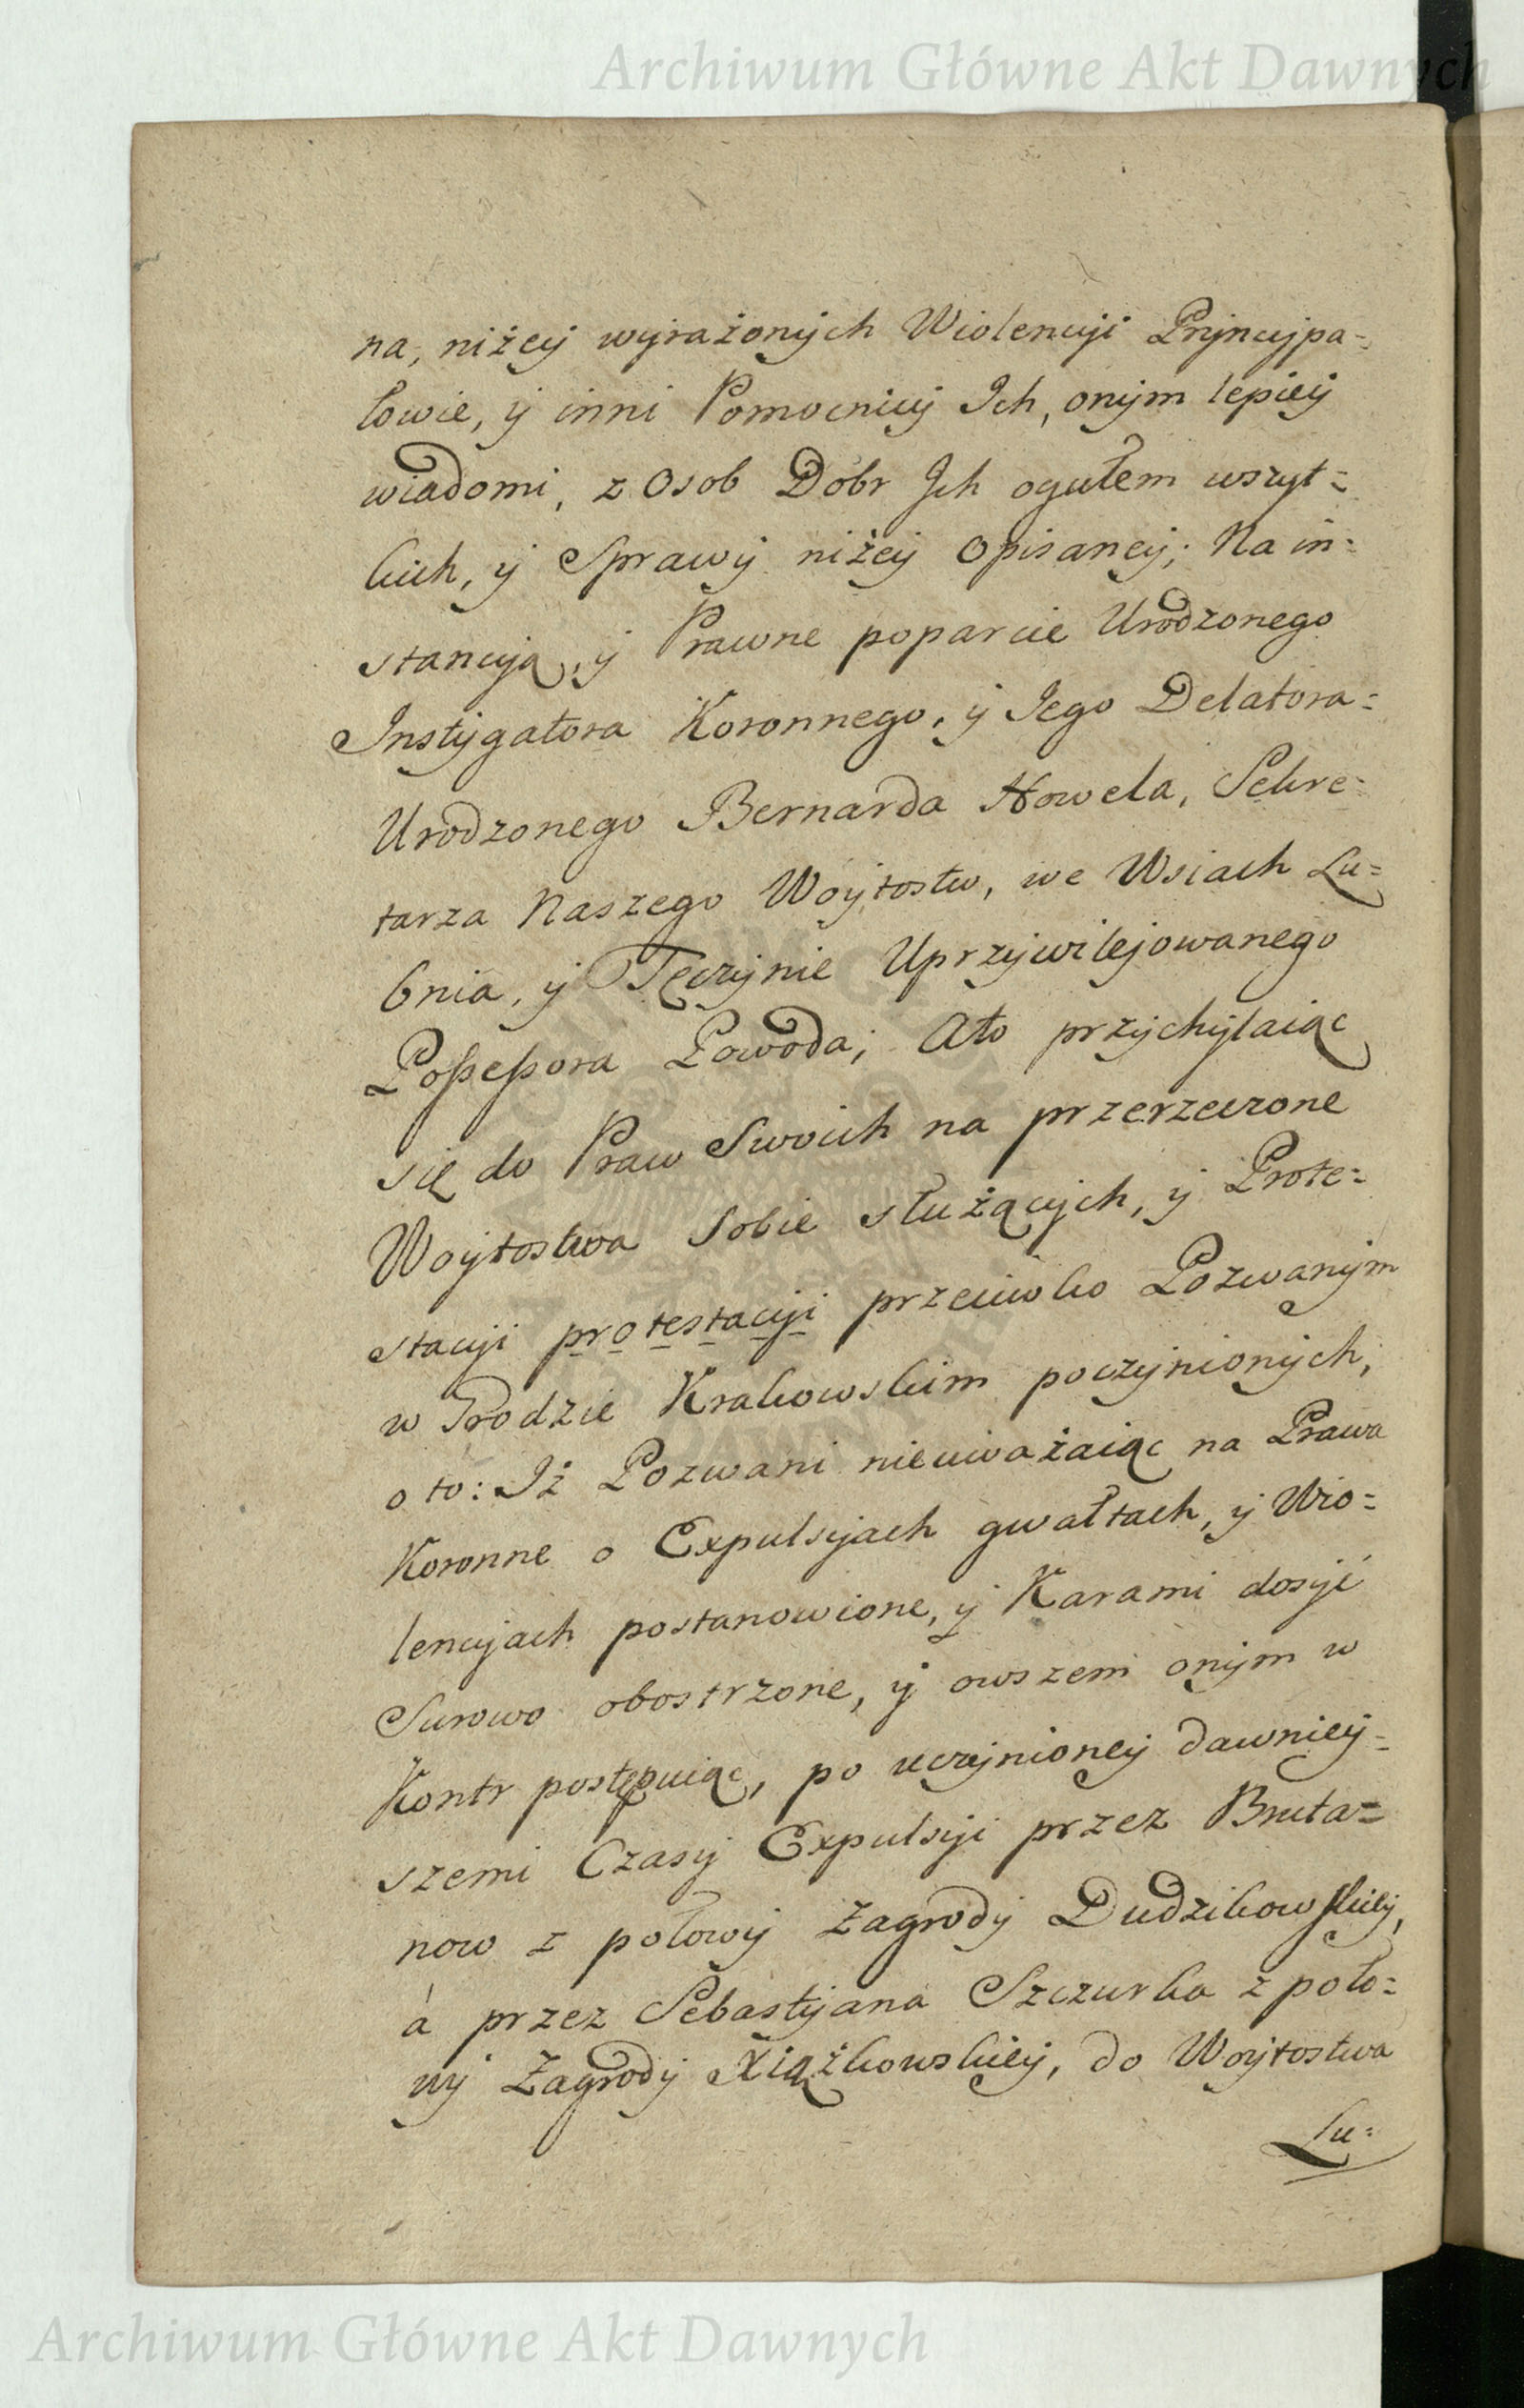 Archiwum Główne Akt Dawnych
na, niżey wyrażonych Wiolencyi Pryncypa-
łowie, y inni Pomocnicy Ich, onym lepiey
wiadomi, z Osob Dobr Ich ogułem wszyt=
kich, y Sprawy niżey Opisaney; Na in=
stancyą, y Prawne poparcie Urodzonego
Instygatora Koronnego, y Jego Delatora=
Urodzonego Bernarda Nowela, Sekre=
tarza Naszego Woytostw, we Wsiach Lu=
bnia, y Tęczynie Uprzywilejowanego
Possessora Powoda; Ato przychylaiąc
się do Praw Swoich na przerzeczone
Woytostwa Sobie służących, y Prote=
stacyi protestacyi przeciwko Pozwanym
w Grodzie Krakowskim poczynionych,
o to: Iż Pozwani nieuważaiąc na Prawa
Koronne o Expulsyjach gwałtach, y Wio=
lencyjach postanowione, y Karami dosyć
Surowo obostrzone, y owszem onym w
Kontr postępuiąc, po uczynioney dawniey=
szemi Czasy Expulsyi przez Bruta=
now z połowy Zagrody Dudzikowskiey,
à przez Sebastyana Szczurka z poło=
wy Zagrody Xiążkowskiey, do Woytostwa
Lu=
Archiwum Główne Akt Dawnych